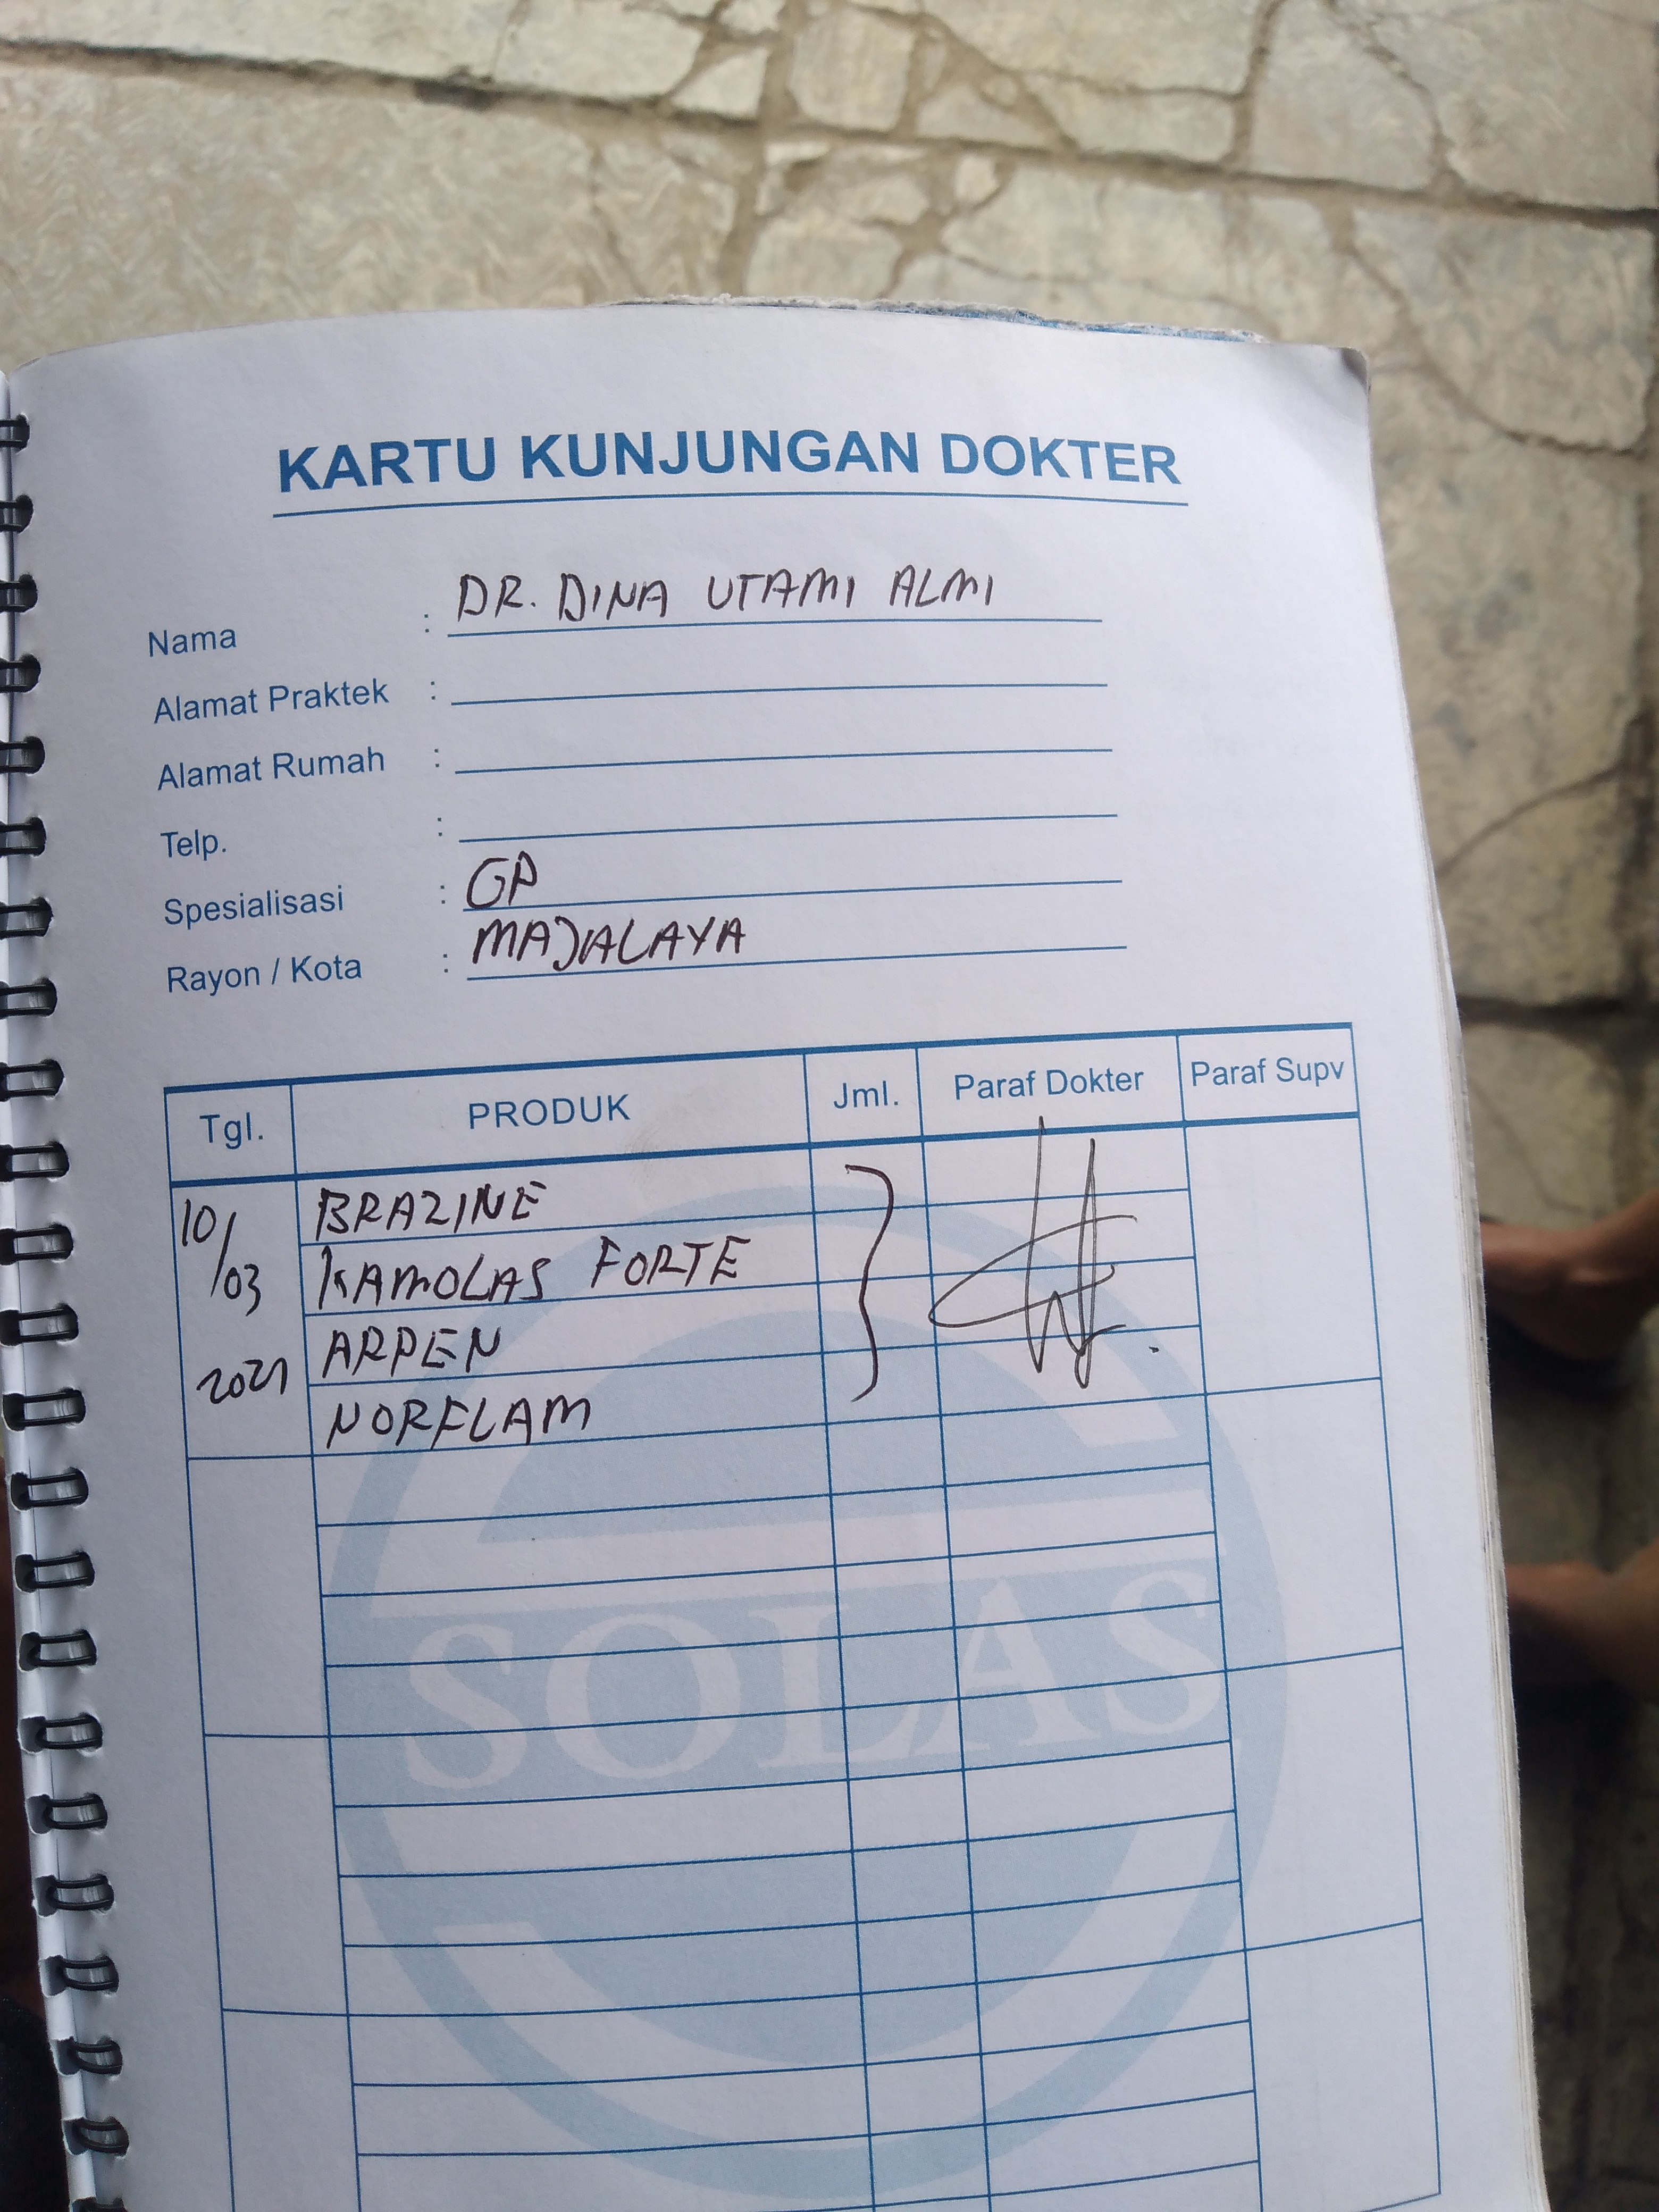 KARTU KUNJUNGAN DOKTER
Nama : DR. DINA UTAMI ALMI
Alamat Praktek :
Alamat Rumah :
Telp. :
Spesialisasi : GP
Rayon / Kota : MAJALAYA
Tgl. PRODUK Jml. Paraf Dokter Paraf Supv
10/ BRAZINE
/03 KAMOLAS FORTE
2021 ARPEN
NORFLAM
SOLAS